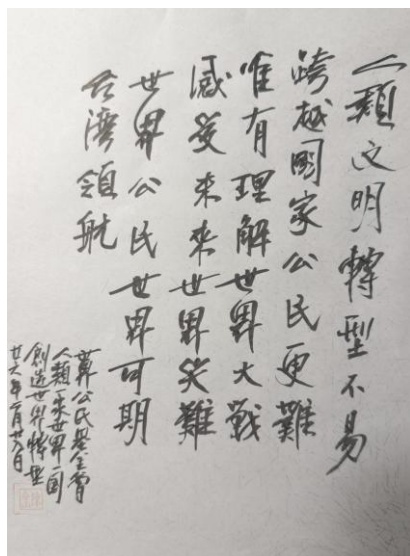 人類文明轉型不易
跨越國家公民更難
唯有理解世界大戰
感受未來世界災難
世界公民世界可期
台灣領航
世界公民基金會
人類未來世界一囯
創造世界轉型
廿六年二月廿八日